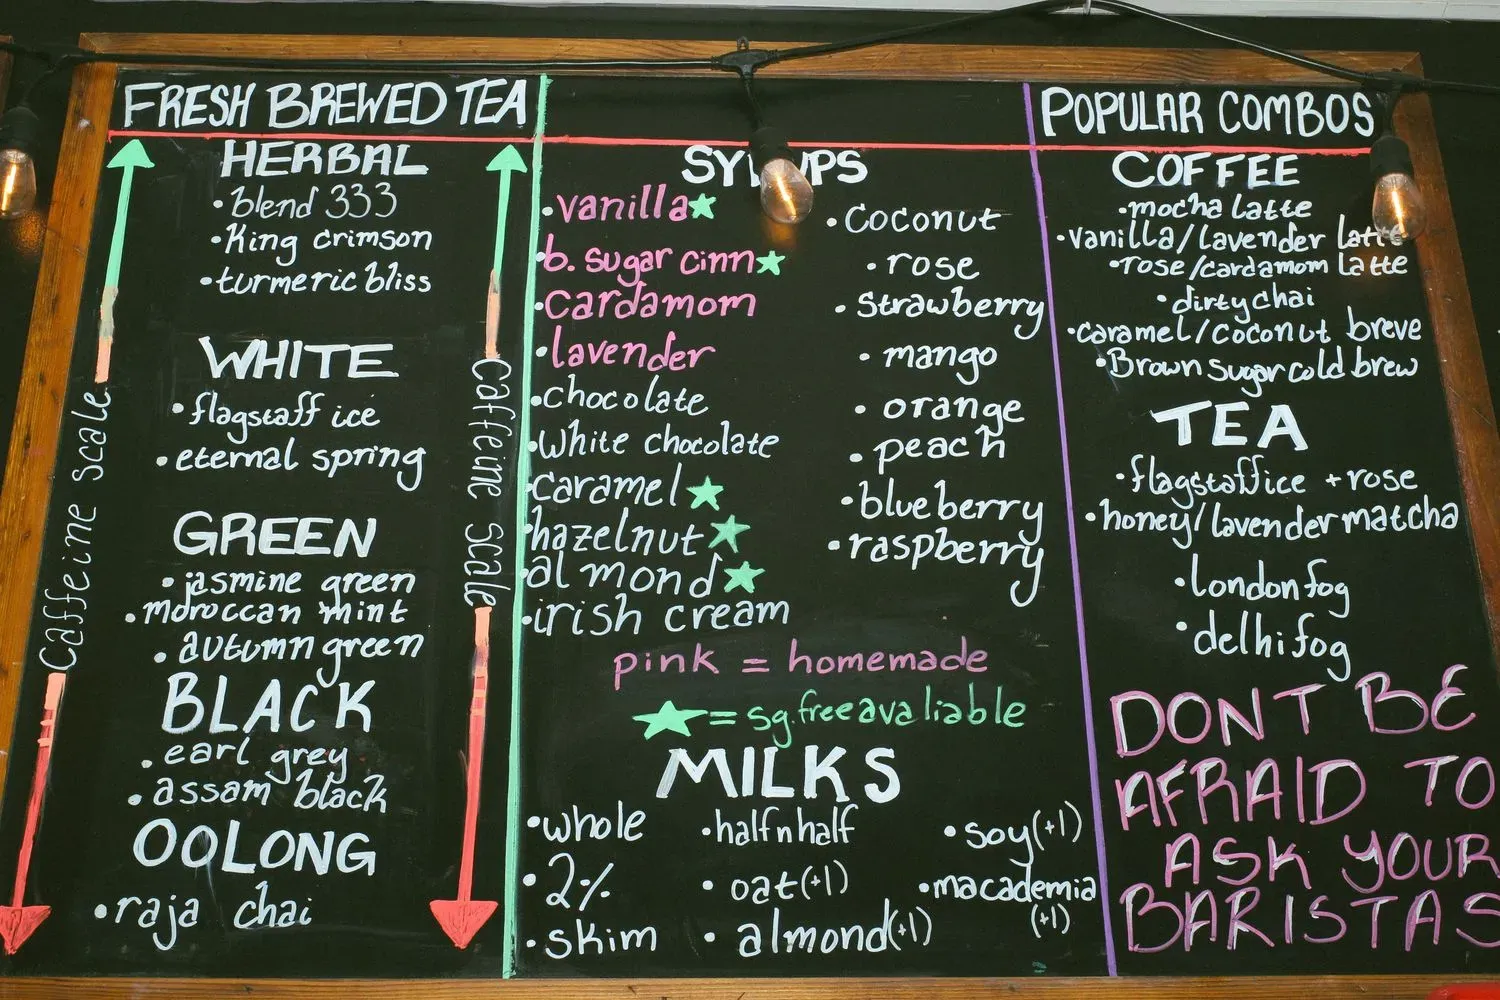 FRESH BREWED TEA
HERBAL
•blend 333
•King crimson
•turmeric bliss
WHITE
•flagstaff ice
•eternal spring
GREEN
•jasmine green
•moroccan mint
•autumn green
BLACK
•earl grey
•assam black
OOLONG
•raja chai
Caffeine Scale
Caffeine Scale
•vanilla★
•b. sugar cinn★
•cardamom
•lavender
•chocolate
•white chocolate
•caramel★
•hazelnut★
•almond★
•irish cream
•coconut
•rose
•strawberry
•mango
•orange
•peach
•blueberry
•raspberry
pink = homemade
★= sg.free avaliable
MILKS
•whole
•2%
•skim
•half n half
•oat(+1)
•almond(+1)
•soy(+1)
•macademia
(+1)
POPULAR COMBOS
COFFEE
•mocha latte
•vanilla/lavender latte
•rose/cardamom latte
•dirty chai
•caramel/coconut breve
•Brown sugar cold brew
TEA
•flagstaff ice + rose
•honey/lavender matcha
•london fog
•delhi fog
DONT BE
AFRAID TO
ASK YOUR
BARISTAS